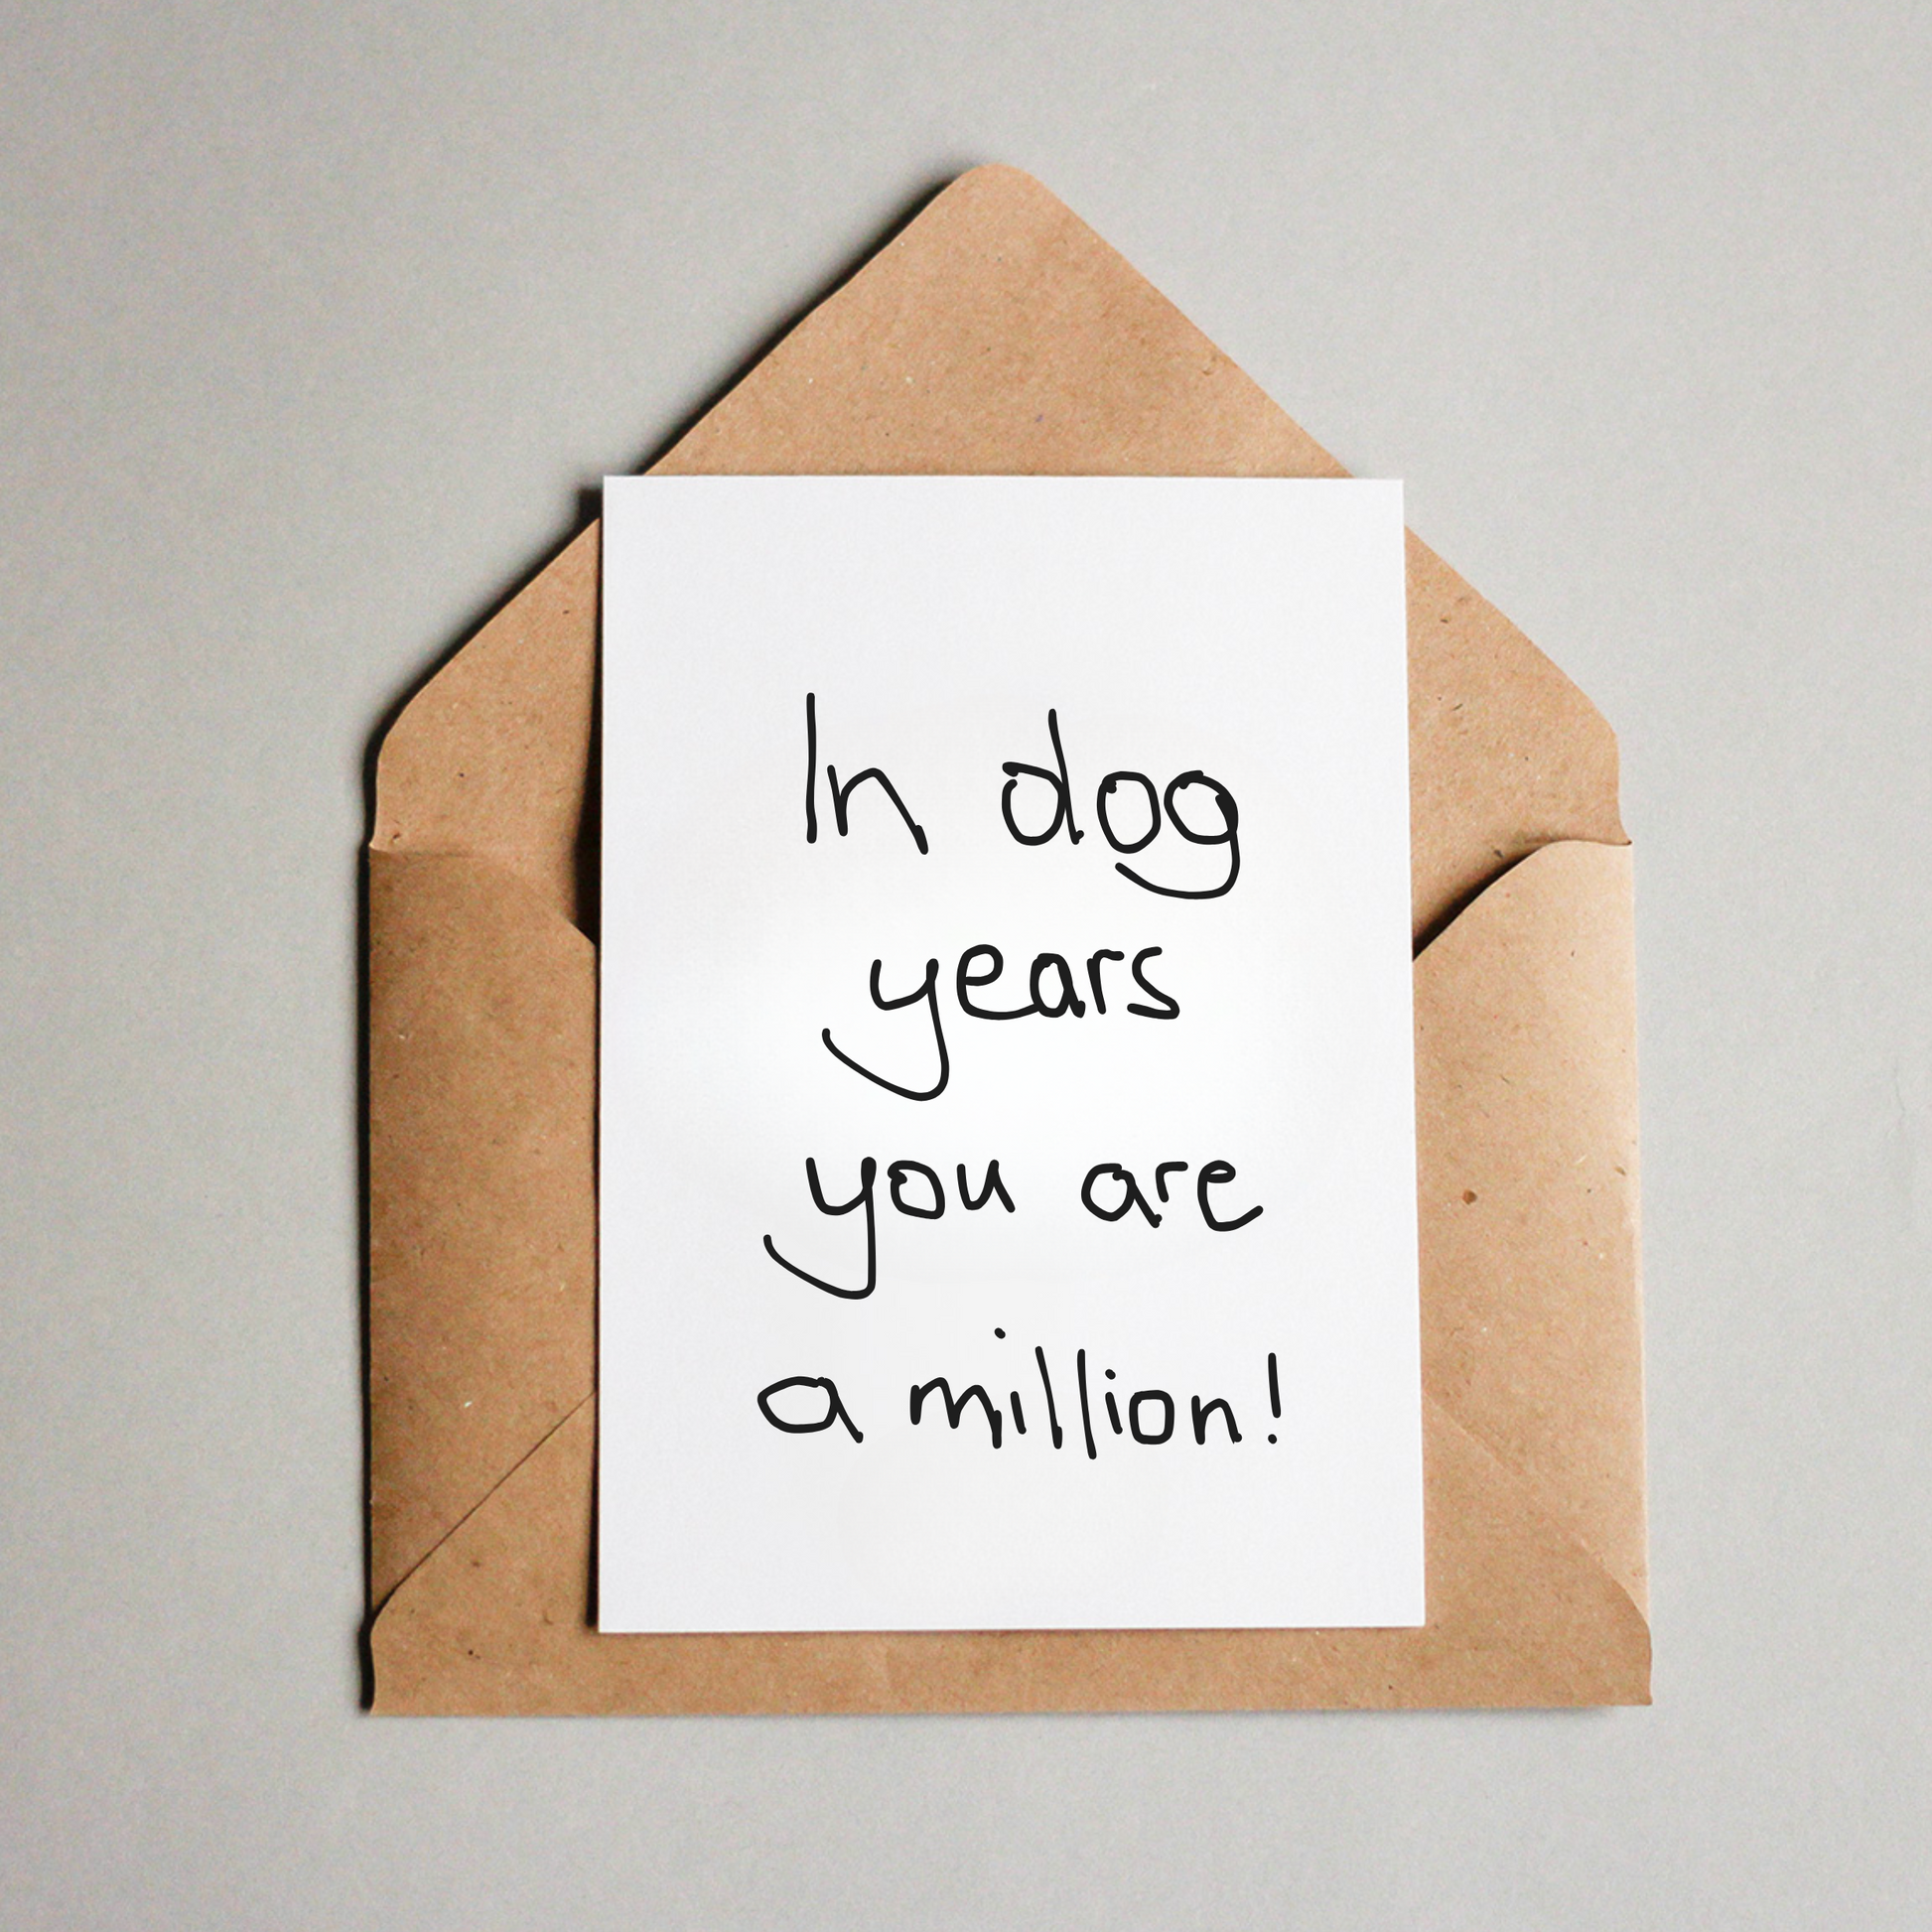 In dog
years
you are
a million!